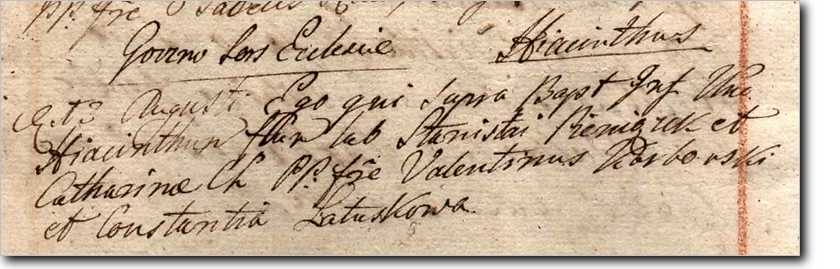 pp. fre
Govorno Sors Ecclesiae Hiacinthus
Augusti Ego qui supra Bapt Inf
Hiacinthum flm lab Stanislai Pieniążek et
Catharinæ Ch PP. fre Valentinus Karbowski
et Constantia Latuskowa.